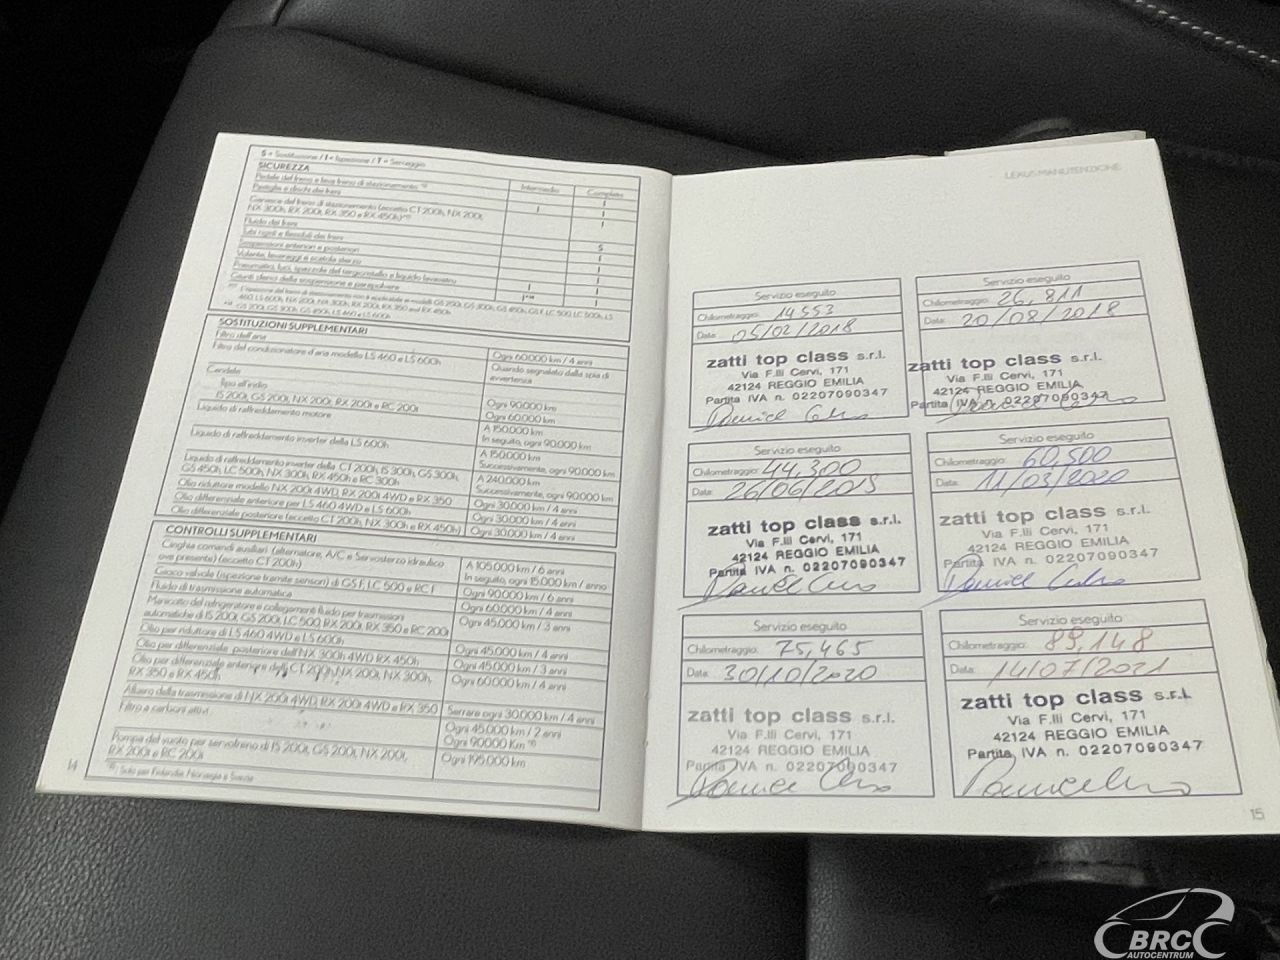 S = Sostituzione / I = Ispezione / T = Serraggio
SICUREZZA
Intermedio
Completo
Pedale del freno e leva freno di stazionamento
I
Pastiglie e dischi dei freni
I
I
Ganasce del freno di stazionamento (eccetto CT 200h, NX 200t,
NX 300h, RX 200t, RX 350 e RX 450h)
I
Fluido dei freni
S
Tubi rigidi e flessibili dei freni
I
Sospensioni anteriori e posteriori
I
Volante, leveraggi e scatola sterzo
I
Pneumatici, luci, spazzole del tergicristallo e liquido lavavetro
I
I
Giunti sferici della sospensione e parapolvere
I
SOSTITUZIONI SUPPLEMENTARI
Filtro dell'aria
Ogni 60.000 km / 4 anni
Filtro del condizionatore d'aria modello LS 460 e LS 600h
Quando segnalato dalla spia di
avvertenza
Candele
Tipo all'iridio
Ogni 90.000 km
IS 200t, GS 200t, NX 200t, RX 200t e RC 200t
Ogni 60.000 km
Liquido di raffreddamento motore
A 150.000 km
In seguito, ogni 90.000 km
Liquido di raffreddamento inverter della LS 600h
A 150.000 km
Successivamente, ogni 90.000 km
Liquido di raffreddamento inverter della CT 200h, IS 300h, GS 300h,
GS 450h, LC 500h, NX 300h, RX 450h e RC 300h
A 240.000 km
Successivamente, ogni 90.000 km
Olio riduttore modello NX 200t 4WD, RX 200t 4WD e RX 350
Ogni 30.000 km / 4 anni
Olio differenziale anteriore per LS 460 4WD e LS 600h
Ogni 30.000 km / 4 anni
Olio differenziale posteriore (eccetto CT 200h, NX 300h e RX 450h)
Ogni 30.000 km / 4 anni
CONTROLLI SUPPLEMENTARI
Cinghia comandi ausiliari (alternatore, A/C e Servosterzo idraulico
ove presente) (eccetto CT 200h)
A 105.000 km / 6 anni
In seguito, ogni 15.000 km / anno
Gioco valvole (ispezione tramite sensori) di GS F, LC 500 e RC F
Ogni 90.000 km / 6 anni
Fluido di trasmissione automatica
Ogni 60.000 km / 4 anni
Manicotto del refrigeratore e collegamenti fluido per trasmissioni
automatiche di IS 200t, GS 200t, LC 500, RX 200t, RX 350 e RC 200t
Ogni 45.000 km / 3 anni
Olio per riduttore di LS 460 4WD e LS 600h
Ogni 45.000 km / 4 anni
Olio per differenziale posteriore dell'NX 300h 4WD RX 450h
Ogni 45.000 km / 3 anni
Olio per differenziale anteriore della CT 200h, NX 200t, NX 300h,
RX 350 e RX 450h
Ogni 60.000 km / 4 anni
Albero della trasmissione di NX 200t 4WD, RX 200t 4WD e RX 350
Serrare ogni 30.000 km / 4 anni
Filtro a carboni attivi
Ogni 45.000 km / 2 anni
Ogni 90.000 Km
Pompa del vuoto per servofreno di IS 200t, GS 200t, NX 200t,
RX 200t e RC 200t
Ogni 195.000 km
Solo per Finlandia, Norvegia e Svezia
14
LEXUS MANUTENZIONE
Servizio eseguito
Chilometraggio: 14553
Data: 05/02/2018
zatti top class s.r.l.
Via F.lli Cervi, 171
42124 REGGIO EMILIA
Partita IVA n. 02207090347
Servizio eseguito
Chilometraggio: 26,811
Data: 20/08/2018
zatti top class s.r.l.
Via F.lli Cervi, 171
42124 REGGIO EMILIA
Partita IVA n. 02207090347
Servizio eseguito
Chilometraggio: 44,300
Data: 26/06/2019
zatti top class s.r.l.
Via F.lli Cervi, 171
42124 REGGIO EMILIA
Partita IVA n. 02207090347
Servizio eseguito
Chilometraggio: 60,500
Data: 11/03/2020
zatti top class s.r.l.
Via F.lli Cervi, 171
42124 REGGIO EMILIA
Partita IVA n. 02207090347
Servizio eseguito
Chilometraggio: 75,465
Data: 30/10/2020
zatti top class s.r.l.
Via F.lli Cervi, 171
42124 REGGIO EMILIA
Partita IVA n. 02207090347
Servizio eseguito
Chilometraggio: 89,148
Data: 14/07/2021
zatti top class s.r.l.
Via F.lli Cervi, 171
42124 REGGIO EMILIA
Partita IVA n. 02207090347
15
BRC
AUTOCENTRUM